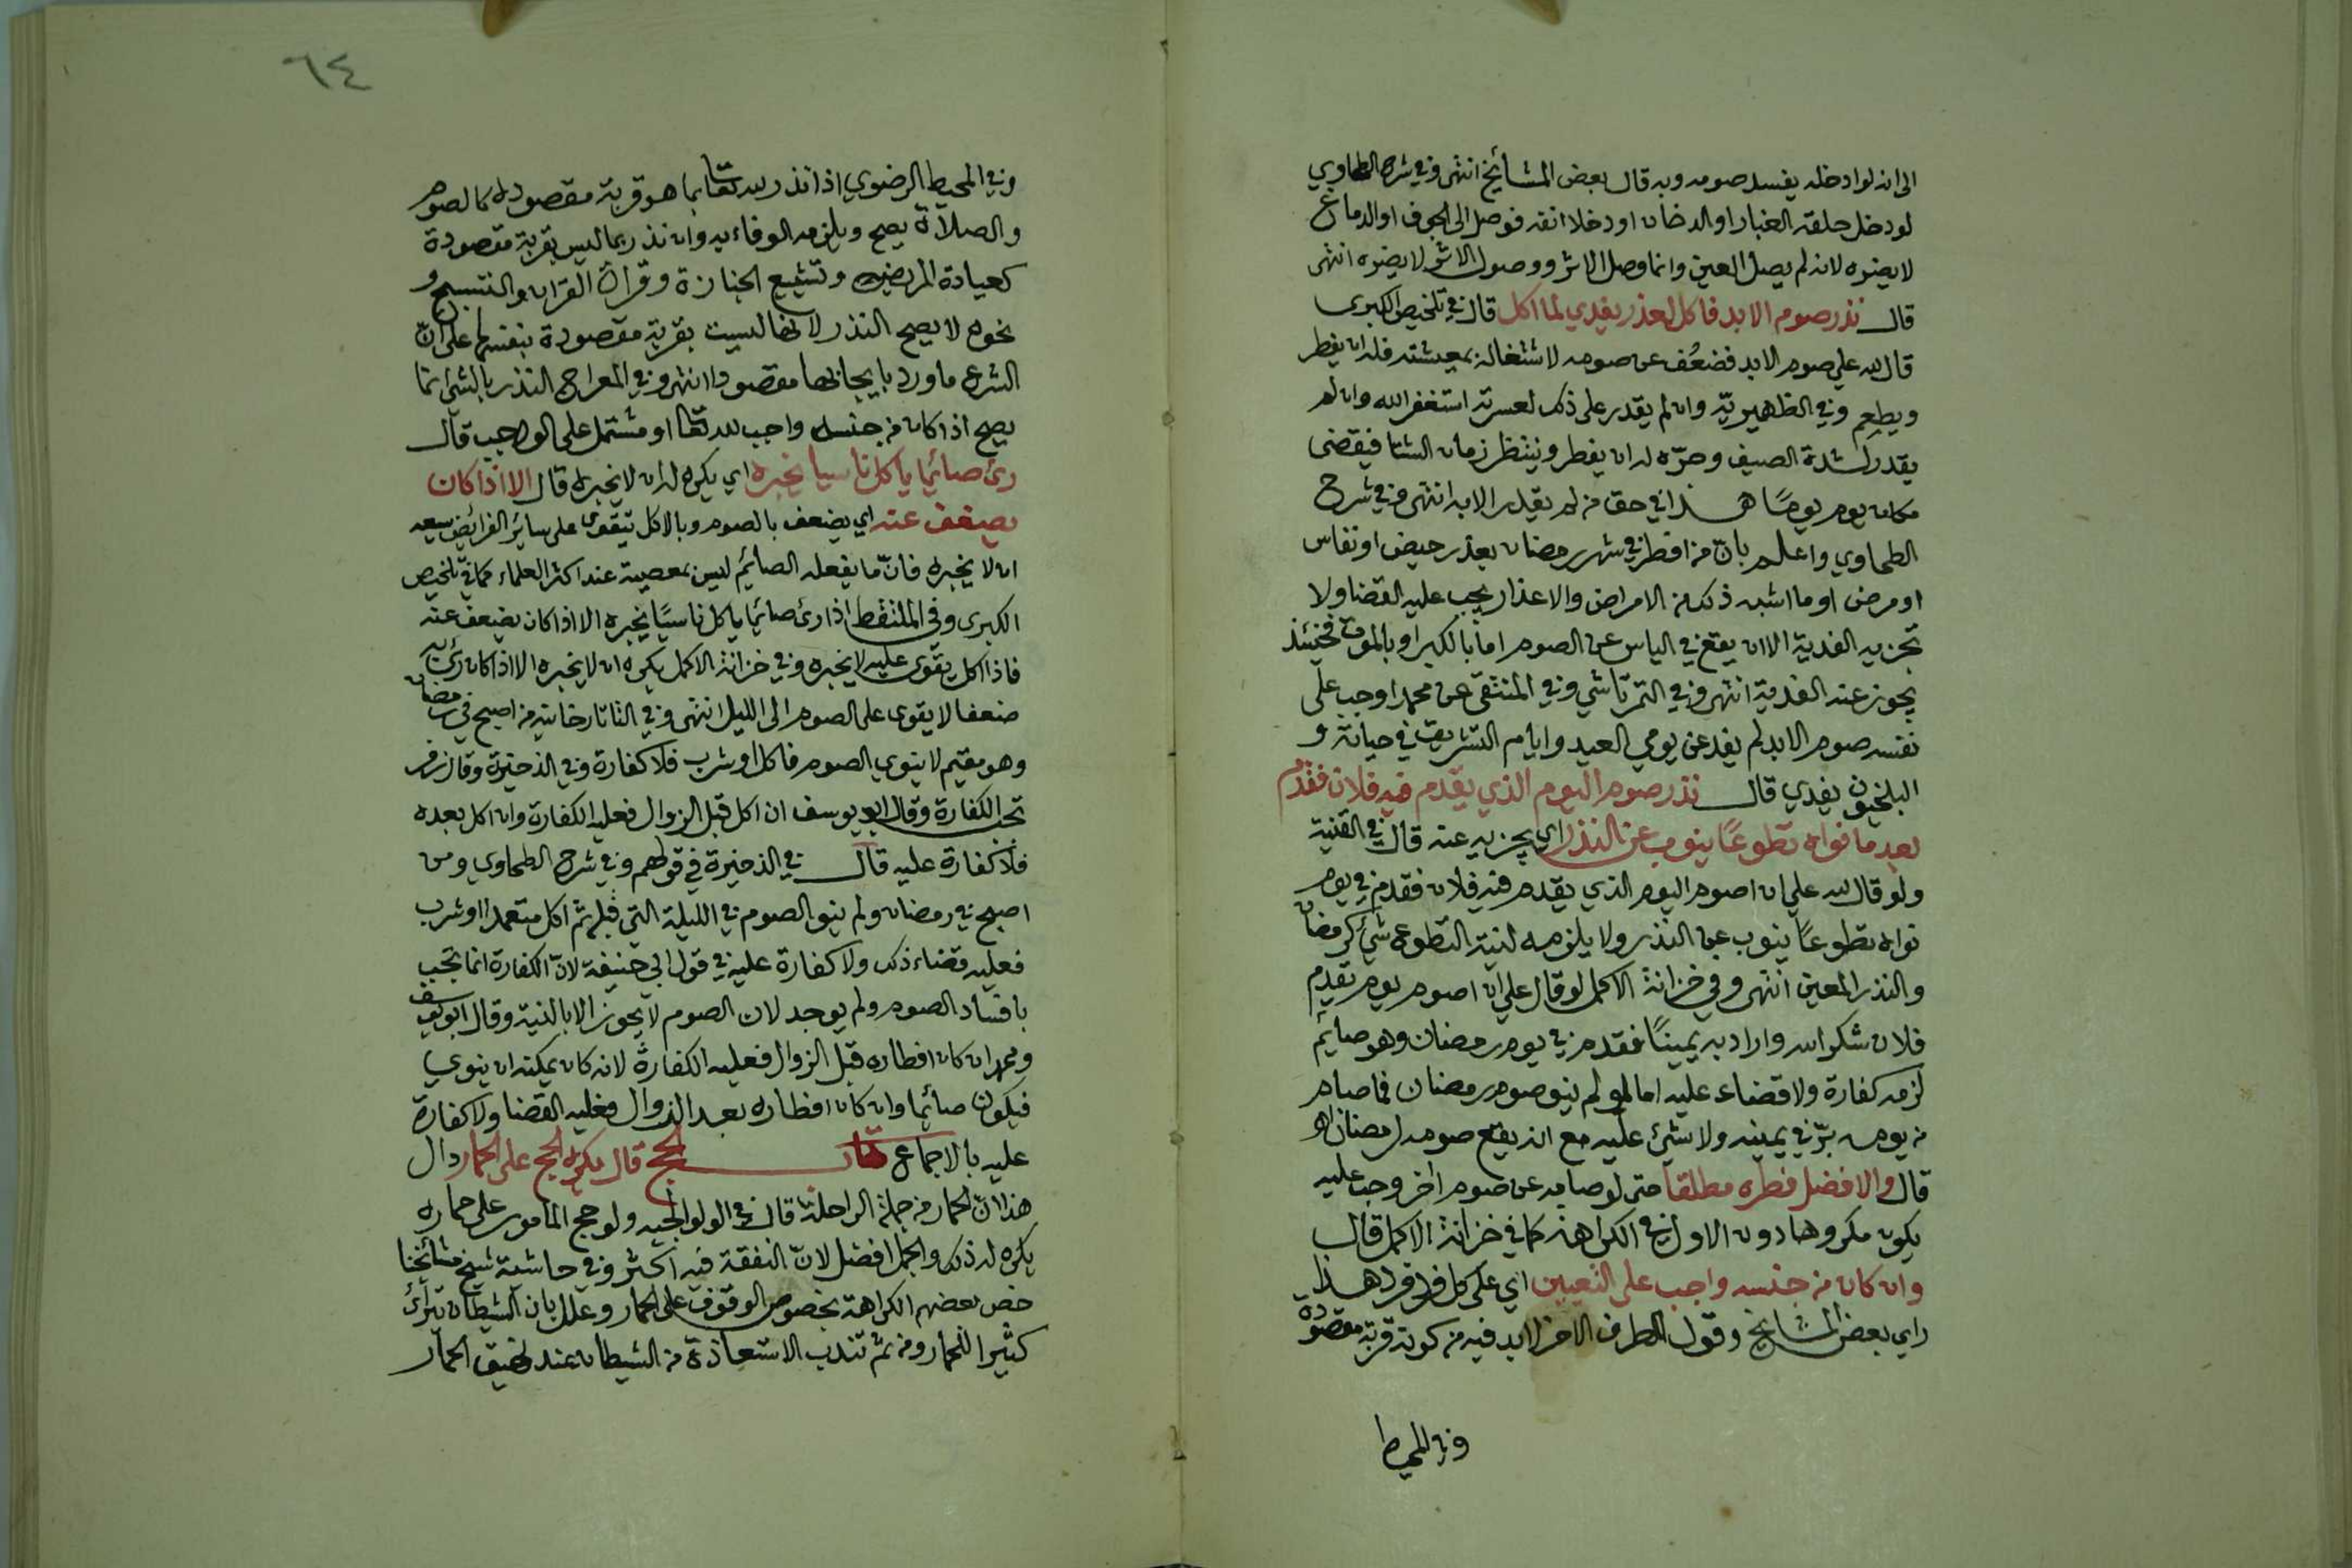 الى انه لو ادخله يفسد صومه وبه قال بعض المشائخ انتهى وفي شرح الطحاوي
لو دخل حلقه الغبار او الدخان او دخلا انفه فوصل الى الجوف او الدماغ
لا يضره لانه لم يصل العين وانما وصل الاثر ووصول الاثر لا يضره انتهى
قال نذر صوم الابد فاكل لعذر يفدي لما اكل قال في تلخيص الكبرى
قال لله علي صوم الابد فضعُف عن صومه لاشتغاله بمعيشته فله ان يفطر
ويطعم وفي الظهيريّة وان لم يقدر على ذلك لعسرته استغفر الله وان لم
يقدر لشدة الصيف وحرّه له ان يفطر وينتظر زمان الشتا فيقضى
مكان يوم يومًا هذا في حق من لم يقدر الابد انتهى وفي شرح
الطحاوي واعلم بانّ من افطر في شهر رمضان بعذر حيض او نفاس
او مرض او ما اشبه ذلك من الامراض والاعذار يجب عليه القضا ولا
تجزيه الفدية الا ان يقع في الياس عن الصوم اما بالكبر او بالموت فحينئذ
يجوز عنه الفدية انتهى وفي التمرتاشي وفي المنتقى عن محمد اوجب على
نفسه صوم الابد لم يفد عن يومي العيد وايام التشريق في حياته و
البلخيون يفدي قال نذر صوم اليوم الذي يقدم فيه فلان فقدم
بعد ما نواه تطوعًا ينوب عن النذر اي يجزيه عنه قال في القنية
ولو قال لله علي ان اصوم اليوم الذي يقدم فيه فلان فقدم في يوم
نواه تطوعًا ينوب عن النذر ولا يلزمه لنية التطوع شئ كرمضان
والنذر المعين انتهى وفي خزانة الاكمل لو قال علي ان اصوم يوم يقدم
فلان شكر الله واراد به يمينًا فقدم في يوم رمضان وهو صايم
لزمه كفارة ولا قضاء عليه اما لو لم ينو صوم رمضان فاصام
من يومه برّ في يمينه ولا شئ عليه مع انه يقع صومه لرمضان اهـ
قال والافضل فطره مطلقا حتى لو صامه عن صوم اخر وجب عليه
يكون مكروها دون الاول في الكراهة كما في خزانة الاكمل قال
وان كان من جنسه واجب على التعيين اي على كل فرد فرد هذا
راي بعض المشايخ وقول الطرف الاخر لا بد فيه من كونه قربة مقصودة
وفي المحيط
٦٤
وفي المحيط الرضوي اذا نذر لله تعالى بما هو قربة مقصودة كالصوم
والصلاة يصح ويلزمه الوفاء به وان نذر بما ليس بقربة مقصودة
كعيادة المريض وتشييع الجنازة وقراة القران والتسبيح و
نحوه لا يصح النذر لانها ليست بقربة مقصودة بنفسها على انّ
الشرع ما ورد بايجابها مقصودا انتهى وفي المعراج النذر بالشئ انما
يصح اذا كان من جنسه واجب لله تعالى او مشتمل على الواجب قال
رئ صائما ياكل ناسيا يخبره اي يكره له ان لا يخبره قال الا اذا كان
يضعف عنه اي يضعف بالصوم وبالاكل يتقوى على سائر الفرائض يسعه
ان لا يخبره فانّ ما يفعله الصائم ليس بمعصية عند اكثر العلماء كما في تلخيص
الكبرى وفي الملتقط اذا رئ صائما ياكل ناسيًا يخبره الا اذا كان يضعف عنه
فاذا اكل يقوى عليه لا يخبره وفي خزانة الاكمل يكره ان لا يخبره الا اذا كان رئ به
ضعفا لا يقوى على الصوم الى الليل انتهى وفي التاتارخانية من اصبح في رمضان
وهو مقيم لا ينوي الصوم فاكل او شرب فلا كفارة وفي الذخيرة وقال زفر
تجب الكفارة وقال ابو يوسف ان اكل قبل الزوال فعليه الكفارة وان اكل بعده
فلا كفارة عليه قال في الذخيرة في قولهم وفي شرح الطحاوي ومن
اصبح في رمضان ولم ينو الصوم في الليلة التي قبله ثم اكل متعمدا او شرب
فعليه قضاء ذلك ولا كفارة عليه في قول ابي حنيفة لانّ الكفارة انما تجب
بافساد الصوم ولم يوجد لان الصوم لا يجوز الا بالنية وقال ابو يوسف
ومحمد ان كان افطاره قبل الزوال فعليه الكفارة لانه كان يمكنه ان ينوي
فيكون صائما وان كان افطاره بعد الزوال فعليه القضا ولا كفارة
عليه بالاجماع كتاب الحج قال يكره الحج على الحمار دال
هذا لانّ الحمار من جملة الراحلة قال في الولوالجيه ولو حج المامور على حماره
يكره له ذلك والجمل افضل لانّ النفقة فيه اكثر وفي حاشية شيخ مشائخنا
خص بعضهم الكراهة بخصوص الوقوف على الحمار وعلل بان الشيطان يترائ
كثيرا للحمار ومن ثم تندب الاستعاذة من الشيطان عند نهيق الحمار